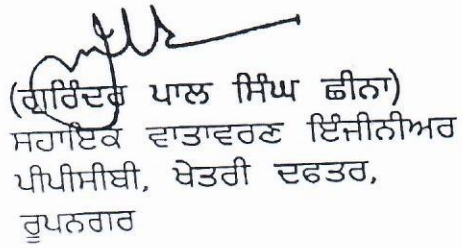 (ਗੁਰਿੰਦਰ ਪਾਲ ਸਿੰਘ ਛੀਨਾ)
ਸਹਾਇਕ ਵਾਤਾਵਰਣ ਇੰਜੀਨੀਅਰ
ਪੀਪੀਸੀਬੀ, ਖੇਤਰੀ ਦਫਤਰ,
ਰੂਪਨਗਰ